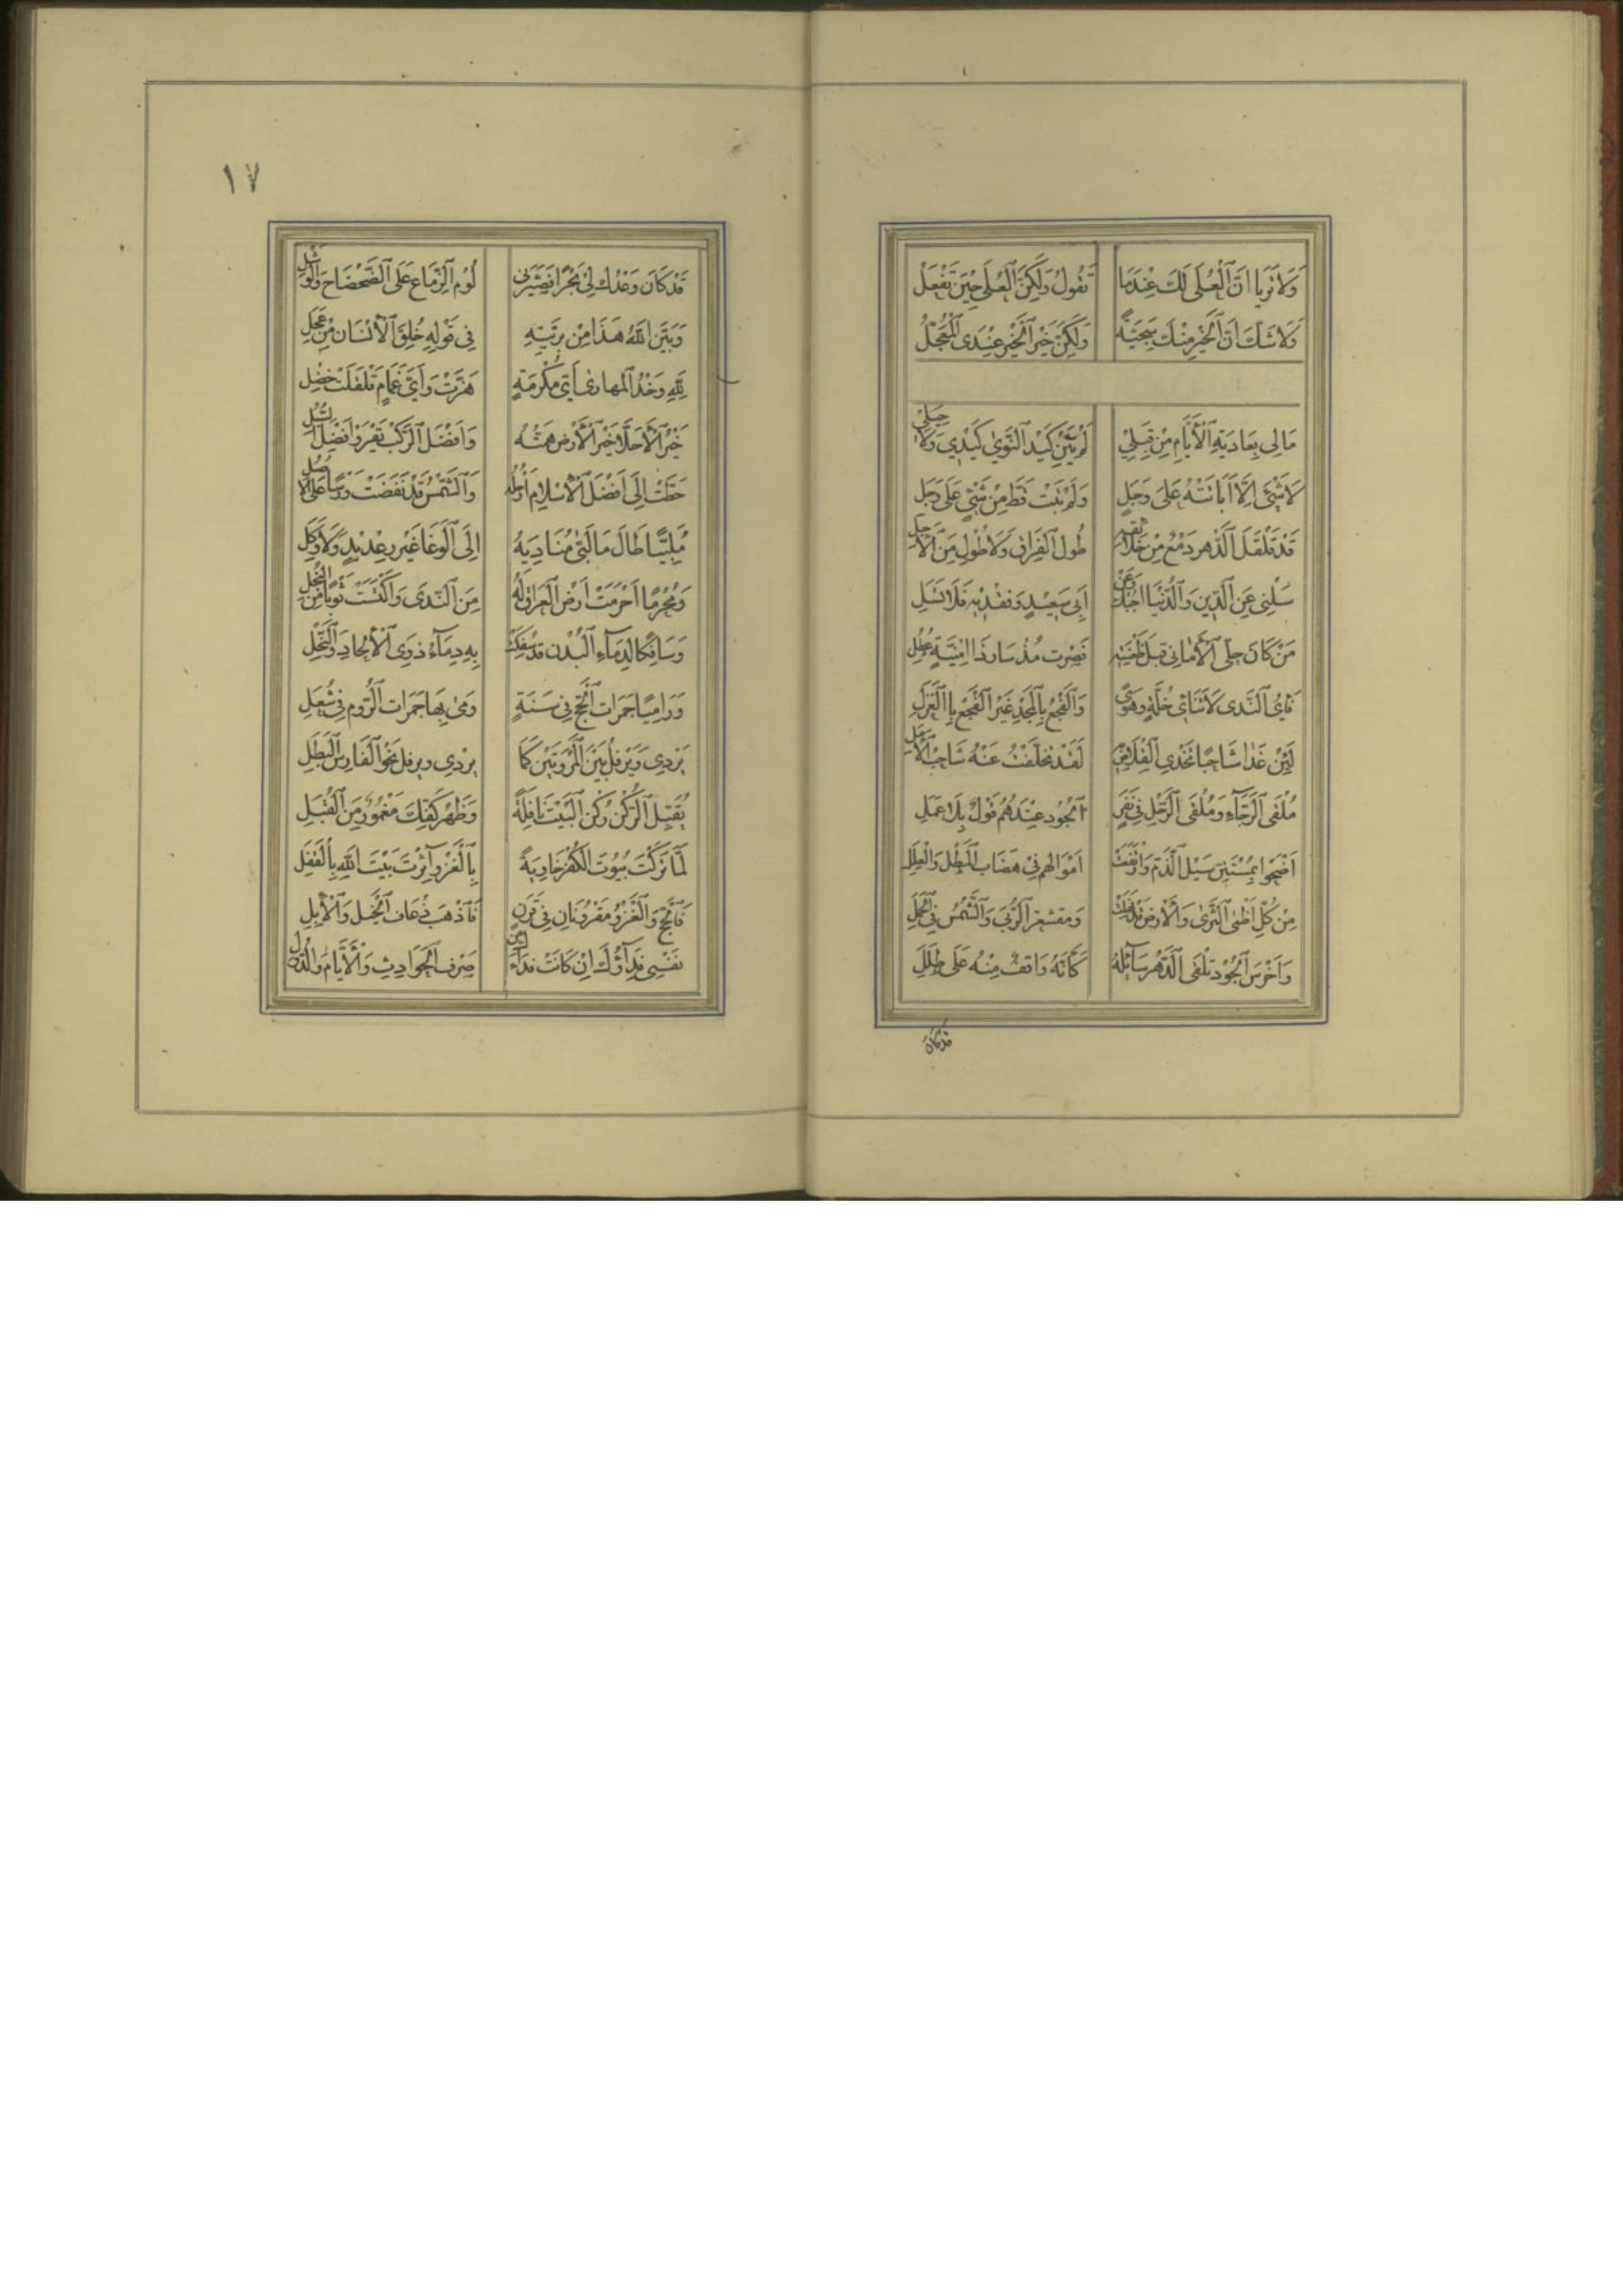 وَلَا تَرَيَا اَنَّ الْعُلَى لَكَ عِنْدَمَا تَقُولُ وَلَكِنَّ الْعُلَى حِيْنَ تَفْعَلُ
وَلَا شَكَّ اَنَّ الْخَيْرَ مِنْكَ سَجِيَّةٌ وَلَكِنَّ خَيْرَ الْخَيْرِ عِنْدِى الْمُعَجَّلُ
مَالِى بِعَادِيَةِ الْاَيَّامِ مِنْ قِبَلِيْ لَمْ يَثْنِ كَيْدَ النَّوٰي كَيْدِي وَلَا حِيَلِىْ
لَا شَيْئَ اِلَّا اَبَانَتْهُ عَلَى وَجَلٍ وَلَمْ تَبِتْ قَطُّ مِنْ شَيْئٍ عَلَى وَجَلِ
قَدْ قَلْقَلَ الدَّهر دَمْعٌ مِنْ خَلَائِقِهِ طُولُ الْفِرَاقِ وَلَا طُولٌ مِنَ الْاَجَلِ
سَلْنِى عَنِ الدِّيْنِ وَالدُّنْيَا اُجِبْكَ وَعَنْ اَبِى سَعِيْدٍ وَفَقْدِيْهِ فَلَا تَسَلِ
مَنْ كَانَ حلى الْاَمَانِى قبلَ ظَعْنَتِهِ فَصِرْت مُذْ سَارَ ذَا اُمْنِيَّةٍ عُطُلِ
نَأْيُ النَّدَى لَا تَنَائِي خُلَّةٍ وَهَوًى وَالْفَجْعُ بِالْمَجْدِ غَيْرَ الْفَجْعِ بِالْغَزَلِ
لَئِنْ غَدَا شَاحِبًا تَخْدِى الْقِلَاصُ بِهِ لَقَدْ تَخَلَّفْتُ عَنْهُ شَاحِبَ الْاَمَلِ
مُلْقَى الرَّجَآءِ وَمُلْقَى الرَّحْلِ فِى نَفَرٍ اَلْجُود عِنْدَهُمُ قَوْلٌ بِلَا عَمَلِ
اَضْحَوْا بِمُسْتَنِّ سَيْلِ الذَّمِّ وَارْتَفَعَتْ اَمْوَالهم فِى هِضَابِ الْمَطْلِ وَالْعِلَلِ
مِنْ كُلِّ اَظْمَى الثَّرَى وَالْاَرْض قَدْ نَهِلَتْ وَمقشعر الرُّبَى وَالشَّمْسُ فِى الْحَمَلِ
وَاَخْرَسَ الْجُوْدِ تَلْقَى الدَّهْرَ سَآئِلَهُ كَأَنَّهُ وَاقفٌ مِنْهُ عَلَى طَلَلِ
قد كان
١٧
قَدْ كَانَ وَعْدُكَ لِى بَحْرًا فَصَيَّرَنِى لُوْمُ الزِّمَاعِ عَلَى الضَّحْضَاحِ وَالْوَشَلِ
وَبَيَّنَ اللهُ هَذَا مِنْ بَرِيَّتِهِ فِى قَوْلِهِ خُلِقَ الْاِنْسَانُ مِنْ عَجَلِ
لِلّٰهِ وَخْدُ الْمَهَارٰى اَيَّ مَكْرُمَةٍ هَزَّتْ وَاَيَّ غَمَامٍ قَلْقَلَتْ خَضِلِ
خَيْرُ الْاَخِلَّاءِ خَيْرُ الْاَرْضِ هِمَّتُهُ وَاَفْضَلُ الرَّكْبِ يَقْرُوْ اَفْضَلَ السُّبُلِ
حُطَّتْ اِلَى اَفْضَلِ الْاِسْلَامِ اَرْحُلُهُ وَالشَّمْسُ قَدْ نَفَضَتْ وَرْسًا عَلَى الْاُصُلِ
مُلَبِّيًا طَالَ مَا لَبّٰى مُنَادِيَهُ اِلَى الْوَغَا غَيْرَ رِعْدِيْدٍ وَلَا وَكِلِ
وَمُحْرِمًا اَحْرَمَتْ اَرْضُ الْعِرَاقِ لَهُ مِنَ النَّدَى وَاكْتَسَتْ ثَوْبًا مِنَ الْبُخُلِ
وَسَافِكًا لِدِمَآءِ الْبُدْنِ قَدْ سُفِكَتْ بِهِ دِمَآءُ ذَوِى الْاِلْحَادِ وَالنِّحَلِ
وَرَامِيًا جَمَرَات الْحَجِّ فِى سَنَةٍ رَمٰى بِهَا جَمَرَات الرُّوم فِى شُعَلِ
يَرْدِى وَيَرْفلُ بَيْنَ الْمَرْوَتَيْنِ كَمَا يردى ويرفل نَحْوَ الْفَارِسِ الْبَطَلِ
يُقَبِّلُ الرُّكْنَ رُكْنَ الْبَيْتِ نَافِلَةً وَظَهْرُ كَفِّكَ مَعْمُورٌ مِنَ الْقُبَلِ
لَمَّا تَرَكْتَ بُيُوتَ الْكُفْرِ خَاوِيَةً بِالْغَزْوِ آثَرْتَ بَيْتَ اللهِ بِالْقَفَلِ
فَالْحَجُّ وَالْغَزْوُ مَقْرُونَانِ فِى قَرَنٍ فَاذْهَبْ ذُعَافَ الْخَيْلِ وَالْاِبِلِ
نَفْسِى فِدَآؤُكَ اِنْ كَانَتْ فِدَاءَكَ مِنْ صَرْفِ الْحَوَادِثِ وَالْاَيَّامِ وَالدُّوَلِ